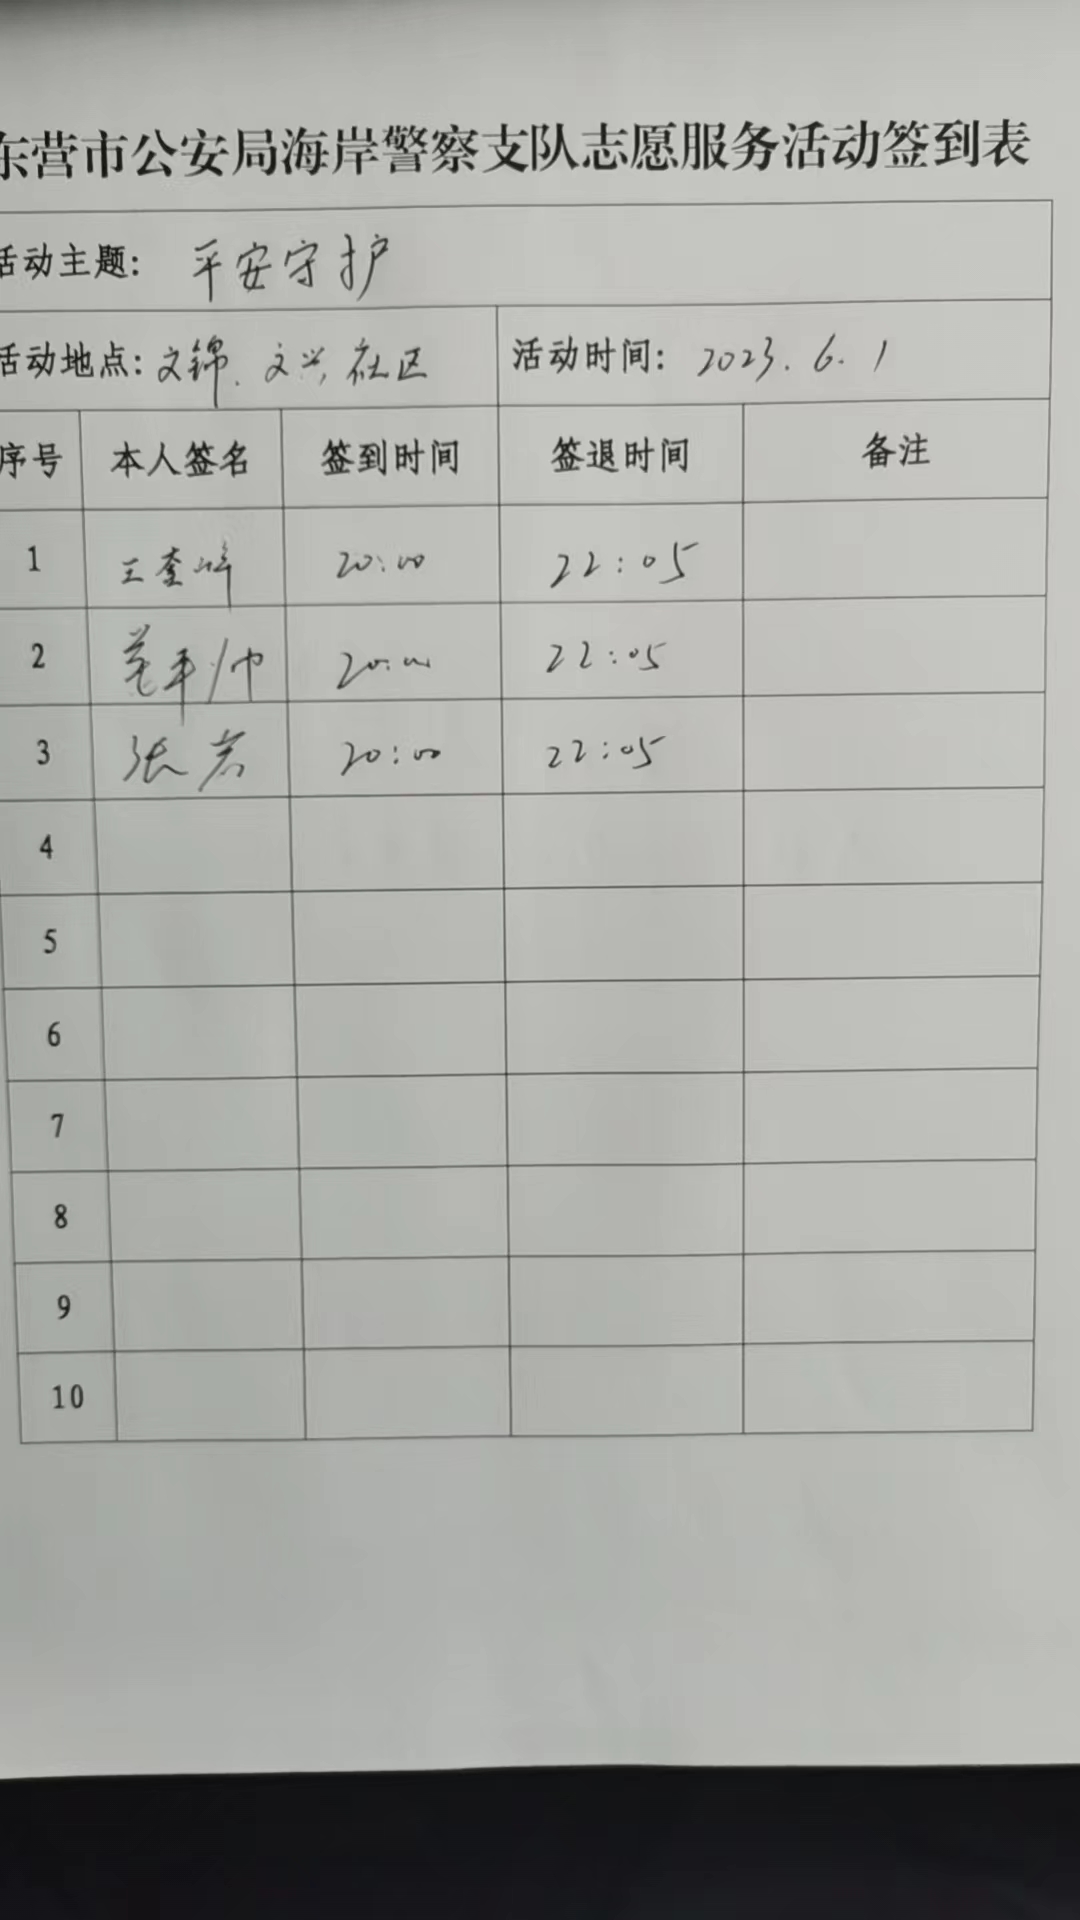 东营市公安局海岸警察支队志愿服务活动签到表
活动主题: 平安守护
活动地点: 文锦、文兴社区 活动时间: 2023.6.1
序号 本人签名 签到时间 签退时间 备注
1 王奎峰 20:00 22:05
2 20:00 22:05
3 张岩 20:00 22:05
4
5
6
7
8
9
10